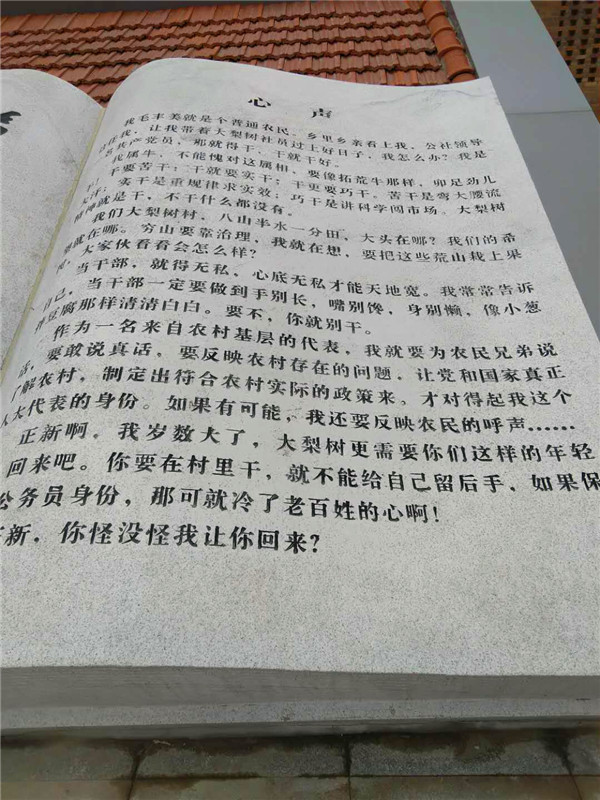 心声
我毛丰美就是个普通农民。乡里乡亲看上我，公社领导
信任我，让我带着大梨树社员过上好日子，我怎么办？我是
共产党员，那就得干、干就干好。
我属牛，不能愧对这属相，要像拓荒牛那样，卯足劲儿
干！干要苦干；干就要实干；干更要巧干。苦干是弯大腰流
大汗；实干是重规律求实效；巧干是讲科学闯市场。大梨树
精神就是干，不干什么都没有。
我们大梨树村，八山半水一分田，大头在哪？我们的希
望就在哪。穷山要靠治理，我就在想，要把这些荒山栽上果
树，大家伙看看会怎么样？
当干部，就得无私，心底无私才能天地宽。我常常告诉
自己，当干部一定要做到手别长，嘴别馋，身别懒，像小葱
拌豆腐那样清清白白。要不，你就别干。
作为一名来自农村基层的代表，我就要为农民兄弟说
话，要敢说真话，要反映农村存在的问题，让党和国家真正
了解农村，制定出符合农村实际的政策来。才对得起我这个
人大代表的身份。如果有可能，我还要反映农民的呼声……
正新啊。我岁数大了，大梨树更需要你们这样的年轻
回来吧。你要在村里干，就不能给自己留后手，如果保
公务员身份，那可就冷了老百姓的心啊！
新，你怪没怪我让你回来？